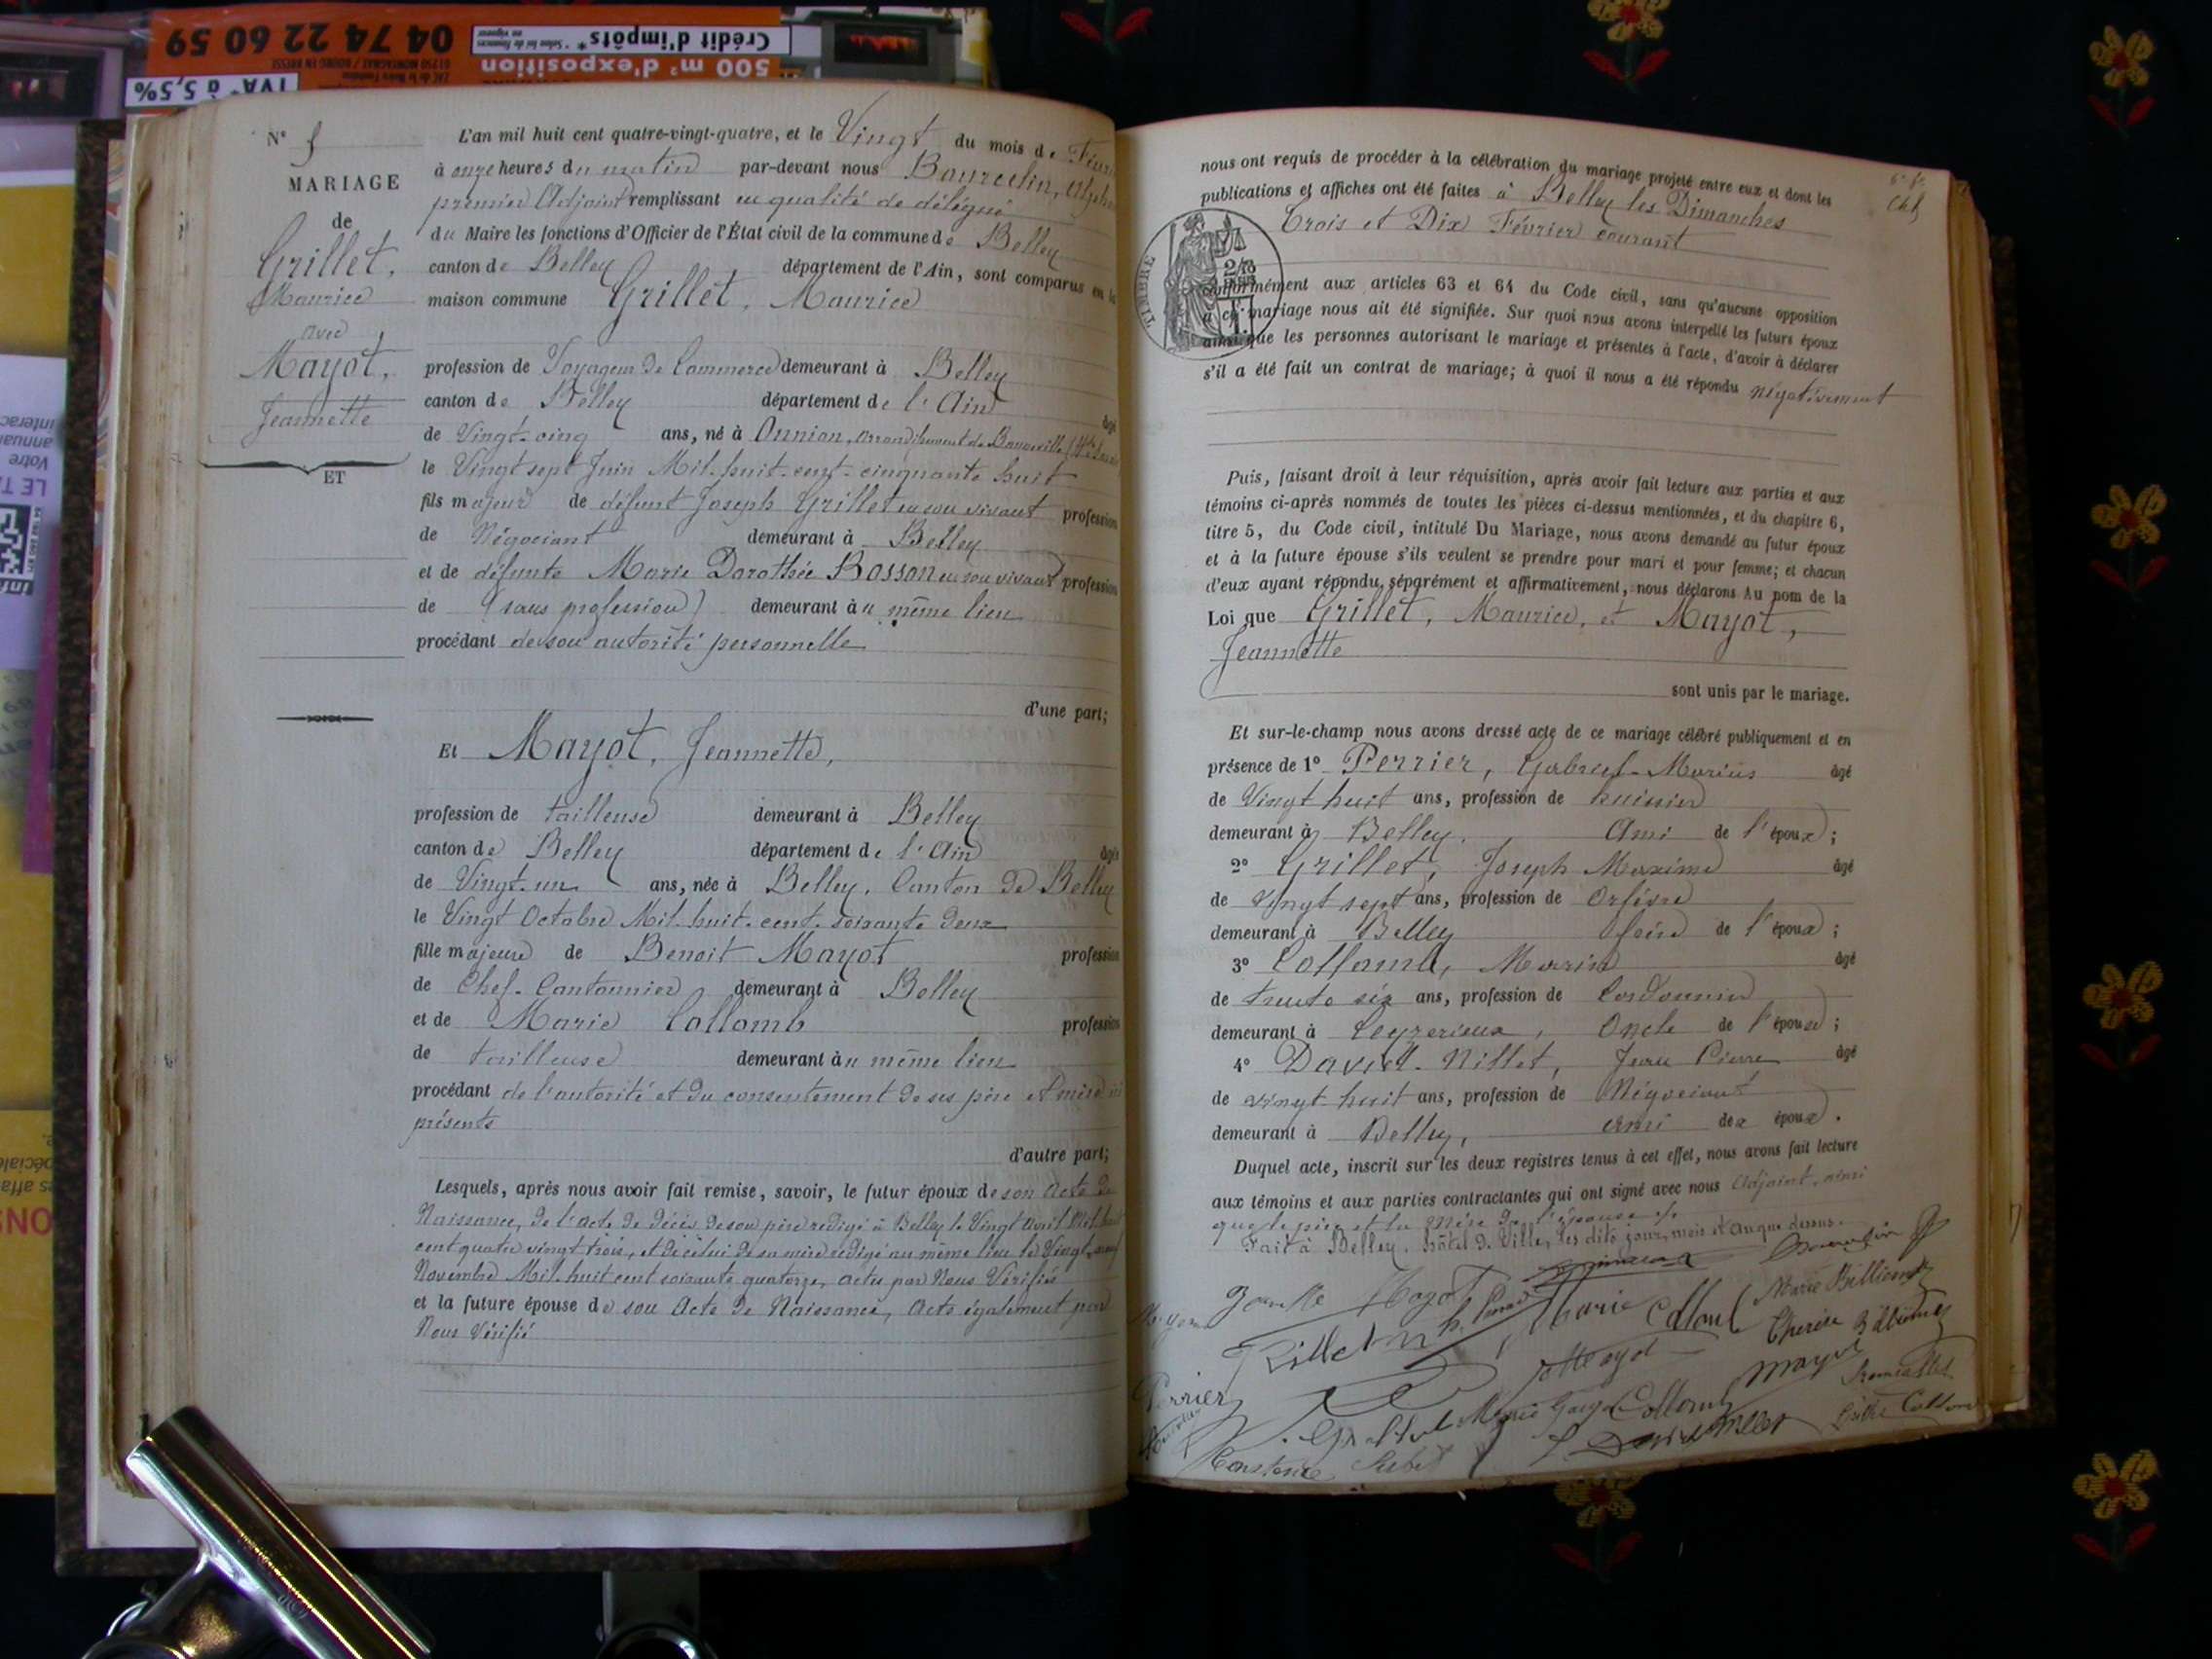 04 74 22 60 59
01250 MONTAGNAT / BOURG EN BRESSE
Crédit d'impôts*
* Selon loi de finances
en vigueur
500 m² d'exposition
TVA* à 5,5%
N° 5
MARIAGE
de
Grillet,
Maurice
avec
Mayot,
Jeannette
ET
L'an mil huit cent quatre-vingt-quatre, et le Vingt du mois de
à onze heures du matin par-devant nous
premier Adjoint remplissant en qualité de délégué
du Maire les fonctions d'Officier de l'État civil de la commune de Belley
canton de Belley département de l'Ain, sont comparus en la
maison commune Grillet, Maurice
profession de Voyageur de Commerce demeurant à Belley
canton de Belley département de l'Ain âgé
de Vingt-cinq ans, né à Onnion, arrondissement de Bonneville
le Vingt sept Juin Mil-huit-cent-cinquante huit
fils majeur de défunt Joseph Grillet en son vivant profession
de Négociant demeurant à Belley
et de défunte Marie Dorothée Bosson en son vivant profession
de (sans profession) demeurant au même lieu
procédant de son autorité personnelle
d'une part;
Et Mayot, Jeannette,
profession de tailleuse demeurant à Belley
canton de Belley département de l'Ain âgée
de Vingt-un ans, née à Belley, Canton de Belley
le Vingt Octobre Mil-huit-cent-soixante deux
fille majeure de Benoit Mayot profession
de Chef-Cantonnier demeurant à Belley
et de Marie Collomb profession
de tailleuse demeurant au même lieu
procédant de l'autorité et du consentement de ses père et mère ici
présents
d'autre part;
Lesquels, après nous avoir fait remise, savoir, le futur époux de son Acte de
Naissance, de l'acte de décès de son père rédigé à Belley le Vingt Avril Mil-huit
cent quatre vingt trois, et de celui de sa mère rédigé au même lieu le Vingt-neuf
Novembre Mil-huit cent soixante quatorze, actes par Nous Vérifiés
et la future épouse de son Acte de Naissance, Acte également par
Nous Vérifié
nous ont requis de procéder à la célébration du mariage projeté entre eux et dont les
publications et affiches ont été faites à Belley les Dimanches
Trois et Dix Février courant
TIMBRE
conformément aux articles 63 et 64 du Code civil, sans qu'aucune opposition
à ce mariage nous ait été signifiée. Sur quoi nous avons interpellé les futurs époux
ainsi que les personnes autorisant le mariage et présentes à l'acte, d'avoir à déclarer
s'il a été fait un contrat de mariage; à quoi il nous a été répondu négativement
Puis, faisant droit à leur réquisition, après avoir fait lecture aux parties et aux
témoins ci-après nommés de toutes les pièces ci-dessus mentionnées, et du chapitre 6,
titre 5, du Code civil, intitulé Du Mariage, nous avons demandé au futur époux
et à la future épouse s'ils veulent se prendre pour mari et pour femme; et chacun
d'eux ayant répondu, séparément et affirmativement, nous déclarons Au nom de la
Loi que Grillet, Maurice, et Mayot,
Jeannette
sont unis par le mariage.
Et sur-le-champ nous avons dressé acte de ce mariage célébré publiquement et en
présence de 1° Perrier, Gabriel-Marius âgé
de Vingt huit ans, profession de huissier
demeurant à Belley, Ami de l'époux;
2° Grillet, Joseph Maxime âgé
de Vingt sept ans, profession de Orfèvre
demeurant à Belley frère de l'époux;
3° Collomb, Marin âgé
de trente six ans, profession de Cordonnier
demeurant à Ceyzerieux, Oncle de l'épouse;
4° David-Nillet, Jean Pierre âgé
de vingt huit ans, profession de Négociant
demeurant à Belley, ami des époux.
Duquel acte, inscrit sur les deux registres tenus à cet effet, nous avons fait lecture
aux témoins et aux parties contractantes qui ont signé avec nous Adjoint, ainsi
que le père et la mère de l'épouse.
Fait à Belley, hôtel de Ville, les dits jour, mois et an que dessus.
Mayot
Marie Collomb
Marie Billiemaz
Mayot
Perrier
Collomb